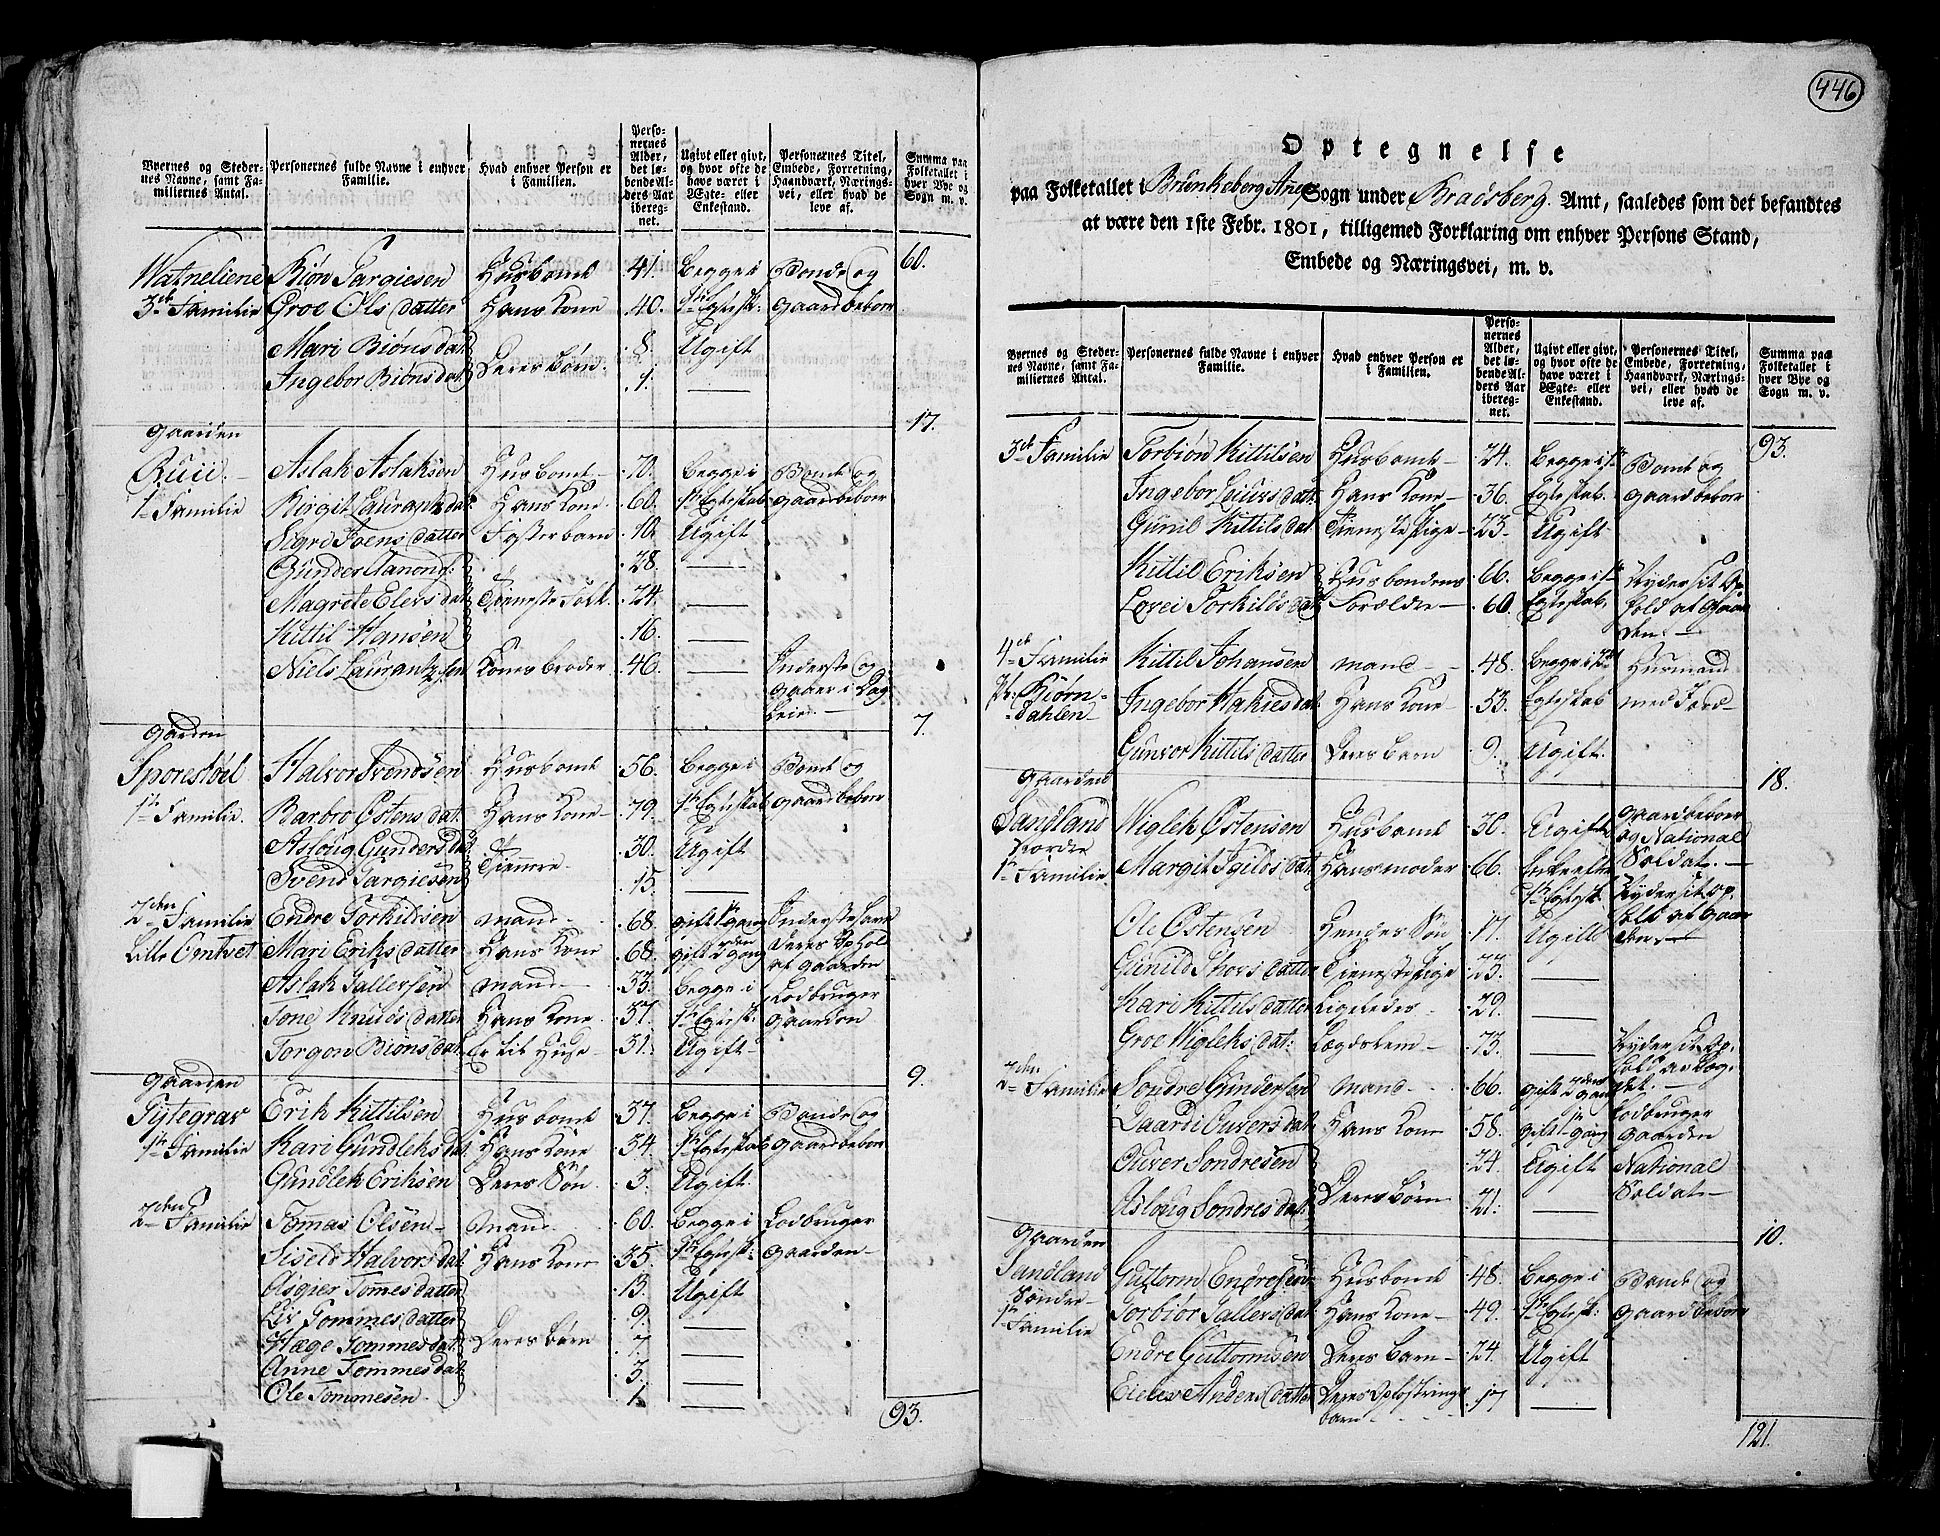 Byernes og Steder-
nes Navne, samt Fa-
miliernes Antal.
Personernes fulde Navne i enhver
Familie.
Hvad enhver Person er
i Familien.
Perso-
nernes
Alder,
det lø-
bende Al-
ders Aar
ibereg-
net.
Ugivt eller givt,
og hvor ofte de
have været i
Ægte- eller
Enkestand.
Personernes Titel,
Embede, Forretning,
Haandværk, Nærings-
vei, eller hvad de
leve af.
Summa paa
Folketallet i
hver Bye og
Sogn m. v.
Watneliene Biøn Targiesen Husbonde 41. Begge i Bonde og 60.
3de Familie Groe Ols datter Hans Kone 40. 1te Egtesk: Gaardbeboer
Mari Biøns dat: 8. Ugift
Deres Børn.
Ingebor Biøns dat: 1. —
17.
Gaarden
Ruii. Aslak Aslaksen Husbonde 70. Begge i Bonde og
1te Familie Birgit Laurantz dat: Hans Kone 60. 1te Egtestab Gaardbeboer
Sigri Joens datter Fosterbarn 10. Ugift
Gunder Aanonds: 28. —
Magrete Elers dat: Tieneste Folk 24. —
Kittil Hansen 16. —
Niels Laurantzsen Konesbroder 46. — Inderste og
gaaer i Dag
Leie.
7.
Gaarden
Sporestøel Halvor Svendsen Husbonde 56. Begge i Bonde og
1te Familie. Barbro Østens dat: Hans Kone 79. 1te Egtestab Gaardbeboer
Aslaug Gunders dat: 30. Ugift
Tienere
Svend Targiesen 15. —
2den Familie Endre Torkildsen Mand 68. gift 1 gang Inderste have
Lille Omtvet Mari Eriks datter Hans Kone 68. gift 2den gang deres Ophol
af Gaarden
Aslak Tallefsen Mand 33. Begge i Lodbruger
Tone Knuds datter Hans Kone 37. 1te Egtesk: Gaarden
Torgon Biøns dat: Er til Huse 31. Ugift
9.
Gaarden
Tytegrav Erik Kittilsen Husbonde 37. Begge i Bonde og
1te Familie Kari Gundleks dat: Hans Kone 34. 1te Egtestab Gaardbeboer
Gundlek Eriksen Deres Søn 3. Ugift
2den Familie Tomas Olsen Mand 60. Begge i Lodbruger
Siseld Halvors dat: Hans Kone 35. 1te Egtesk: Gaarden
Asgier Tommes datter 13. Ugift
Liv Tommes datter 9. —
Hæge Tommes dat: Deres Børn 7.
Anne Tommes dat: 3. —
Ole Tommesen 1. —
93.
446
Optegnelse
paa Folketallet i Brunkeberg Anex Sogn under Bradsberg Amt, saaledes som det befandtes
at være den 1ste Febr. 1801, tilligemed Forklaring om enhver Persons Stand,
Embede og Næringsvei, m. v.
Byernes og Steder-
nes Navne, samt Fa-
miliernes Antal.
Personernes fulde Navne i enhver
Familie.
Hvad enhver Person er
i Familien.
Perso-
nernes
Alder,
det lø-
bende Al-
ders Aar
ibereg-
net.
Ugivt eller givt,
og hvor ofte de
have været i
Ægte- eller
Enkestand.
Personernes Titel,
Embede, Forretning,
Haandværk, Nærings-
vei, eller hvad de
leve af.
Summa paa
Folketallet i
hver Bye og
Sogn m. v.
3de Familie Torbiøn Kittilsen Husbonde 24. Begge i 1te Bonde og 93.
Ingebor Leiurs dat: Hans Kone 36. Egtestab. Gaardbeboer
Gunil Kittils dat: Tieneste Pige 23. Ugift
Kittil Eriksen Husbondens 66. Begge i 1te Nyder sit Op-
Lovei Torkilds dat: Forældre 60. Egtestab. hold af Gaar
den.
4de Familie Kittil Johansen Mand 48. Begge i 1te Husmand
Pl: Biørn- Ingebor Hakies dat: Hans Kone 53. Egteskab med Jord
dahlen
Gunvor Kittils datter Deres barn 9. Ugift.
18.
Gaarden
Sandland Wiglek Østensen Husbonde 30. Ugift Gaardbeboer
Nordre og National
Soldat.
1te Familie Margit Igilds dat: Hans moder 66. Enke efter
1te Egtesk: Nyder sit Op
hold af Gaar
den.
Ole Østensen Hendes Søn 17. Ugift
Gunild Thors datter Tieneste Pige 23. —
Kari Kittils datter Ligeledes 29. —
Groe Wigleks dat: Lægdslem 73. — Nyder sit Op-
hold af Læg
det.
2den Familie Sondre Gundersen Mand 66. gift 2den gang
Daardi Ouvers dat: Hans Kone 58. gift 1te gang Lodbruger
Gaarden
Ouver Sondresen 24. Ugift National
Soldat
Deres børn
Aslaug Sondres dat: 21. —
10.
Gaarden
Sandland Guttorm Endresen Husbonde 48. Begge i Bonde og
Søndre
1te Familie Torbiør Tallevs dat: Hans Kone 49. 1te Egtesk: Gaardbeboer
Endre Guttormsen Deres Barn 24. Ugift
Anders datter Deres Opfostrings 17 —
barn
121.